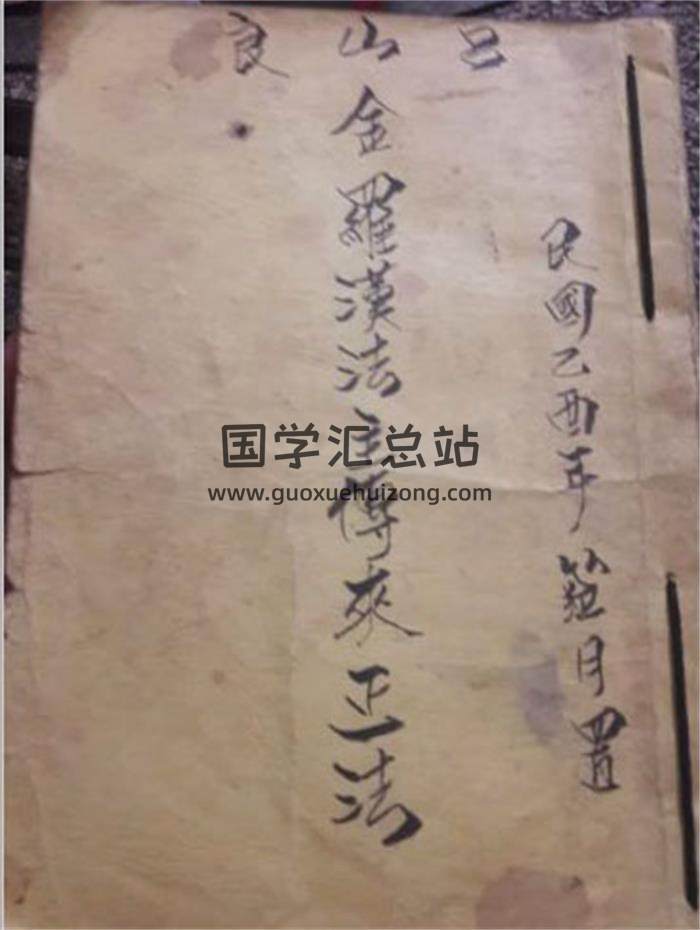 呂山良
民國乙酉年月置
金羅漢法主傳來正法
国学汇总站
www.guoxuehuizong.com